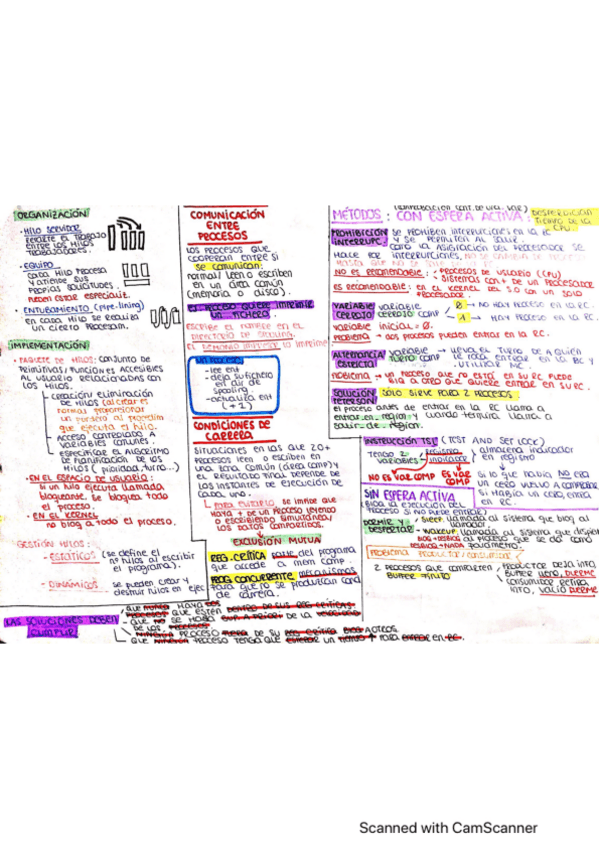 ORGANIZACIÓN
• HILO SERVIDOR
REPARTE EL TRABAJO
ENTRE LOS HILOS
TRABAJADORES.
• EQUIPO
CADA HILO PROCESA
Y ATIENDE SUS
PROPIAS SOLICITUDES.
PUEDEN ESTAR ESPECIALIZ.
• ENTUBAMIENTO (Pipe-lining)
EN CADA HILO SE REALIZA
UN CIERTO PROCESAM.
IMPLEMENTACIÓN
• PAQUETE DE HILOS: CONJUNTO DE
PRIMITIVAS/FUNCIONES ACCESIBLES
AL USUARIO RELACIONADAS CON
LOS HILOS.
- CREACIÓN/ELIMINACIÓN
DE HILOS (al crear es
normal proporcionar
un puntero al procedim
que ejecuta el hilo.
- ACCESO CONTROLADO A
VARIABLES COMUNES.
- ESPECIFICAR EL ALGORITMO
DE PLANIFICACIÓN DE LOS
HILOS (prioridad, turno...)
• EN EL ESPACIO DE USUARIO:
SI UN HILO EJECUTA LLAMADA
BLOQUEANTE, SE BLOQUEA TODO
EL PROCESO.
• EN EL KERNEL
NO BLOQ A TODO EL PROCESO.
GESTIÓN HILOS:
- ESTÁTICOS (se define el
nº hilos al escribir
el programa).
- DINÁMICOS se pueden crear y
destruir hilos en ejec
COMUNICACIÓN
ENTRE
PROCESOS
LOS PROCESOS QUE
COOPERAN ENTRE SI
SE COMUNICAN:
normal/ leen o escriben
en un área común
(memoria o disco).
EL PROCESO QUIERE IMPRIMIR
UN FICHERO:
ESCRIBE EL NOMBRE EN EL
DIRECTORIO DE SPOOLING.
EL DEMONIO IMPRESOR lo imprime
- lee ent
- deja su fichero
en dir de
spooling
- actualiza ent
(+1)
CONDICIONES DE
CARRERA
SITUACIONES EN LAS QUE 2 o +
PROCESOS LEEN O ESCRIBEN EN
UNA ZONA COMÚN (área comp) y
EL RESULTADO FINAL DEPENDE DE
LOS INSTANTES DE EJECUCIÓN DE
CADA UNO.
PARA EVITARLO se impide que
haya + de un proceso leyendo
o escribiendo simultánea/
los datos compartidos.
EXCLUSIÓN MUTUA
REG. CRÍTICA parte del programa
que accede a mem comp.
PROG CONCURRENTE mecanismos
para que no se produzcan cond
de carrera.
MÉTODOS: CON ESPERA ACTIVA: DESPERDICIAN
TIEMPO DE LA
CPU.
PROHIBICIÓN
INTERRUPC.
SE PROHIBEN INTERRUPCIONES EN LA RC
Y SE PERMITEN AL SALIR.
COMO LA ASIGNACIÓN DEL PROCESADOR SE
HACE POR INTERRUPCIONES, NO SE CAMBIA DE PROCESO
NO ES RECOMENDABLE: • PROCESOS DE USUARIO (CPU)
• SISTEMAS CON + DE UN PROCESADOR
ES RECOMENDABLE: EN EL KERNEL DEL S.O CON UN SOLO
PROCESADOR
VARIABLE
CERROJO
variable
cerrojo comp
0 → NO HAY PROCESO EN LA RC.
1 → HAY PROCESO EN LA RC.
VARIABLE inicial = 0.
PROBLEMA → DOS PROCESOS PUEDEN ENTRAR EN LA RC.
ALTERNANCIA
ESTRICTA
VARIABLE
comp
LLEVA EL TURNO DE A QUIEN
LE TOCA ENTRAR EN LA RC Y
UTILIZAR MC.
PROBLEMA → UN PROCESO QUE NO ESTÁ EN SU RC PUEDE
BLOQ A OTRO QUE QUIERE ENTRAR EN SU RC.
SOLUCIÓN
PETERSON
SOLO SIRVE PARA 2 PROCESOS.
el proceso antes de entrar en la RC llama a
entrar_en_region y cuando termina llama a
salir_de_region.
INSTRUCCIÓN TSL (TEST AND SET LOCK)
TENGO 2
VARIABLES
REGISTRO
INDICADOR
almacena indicador
en registro
NO ES VAR COMP
ES VAR
COMP
SI LO QUE HABÍA NO ERA
UN CERO VUELVO A COMPROBAR
SI HABÍA UN CERO, ENTRA
EN RC.
SIN ESPERA ACTIVA
BLOQ LA EJECUCIÓN DEL
PROCESO SI NO PUEDE ENTRAR
DORMIR Y
DESPERTAR
- SLEEP: llamada al sistema que bloq al
llamador.
- WAKEUP: llamada al sistema que desbloq
al proceso que se dé como
parámetro.
PROBLEMA PRODUCTOR/CONSUMIDOR
2 PROCESOS QUE COMPARTEN
BUFFER FINITO
PRODUCTOR DEJA INFO,
BUFFER LLENO, DUERME
CONSUMIDOR RETIRA
INFO, VACÍO DUERME
LAS SOLUCIONES DEBEN
CUMPLIR
Scanned with CamScanner